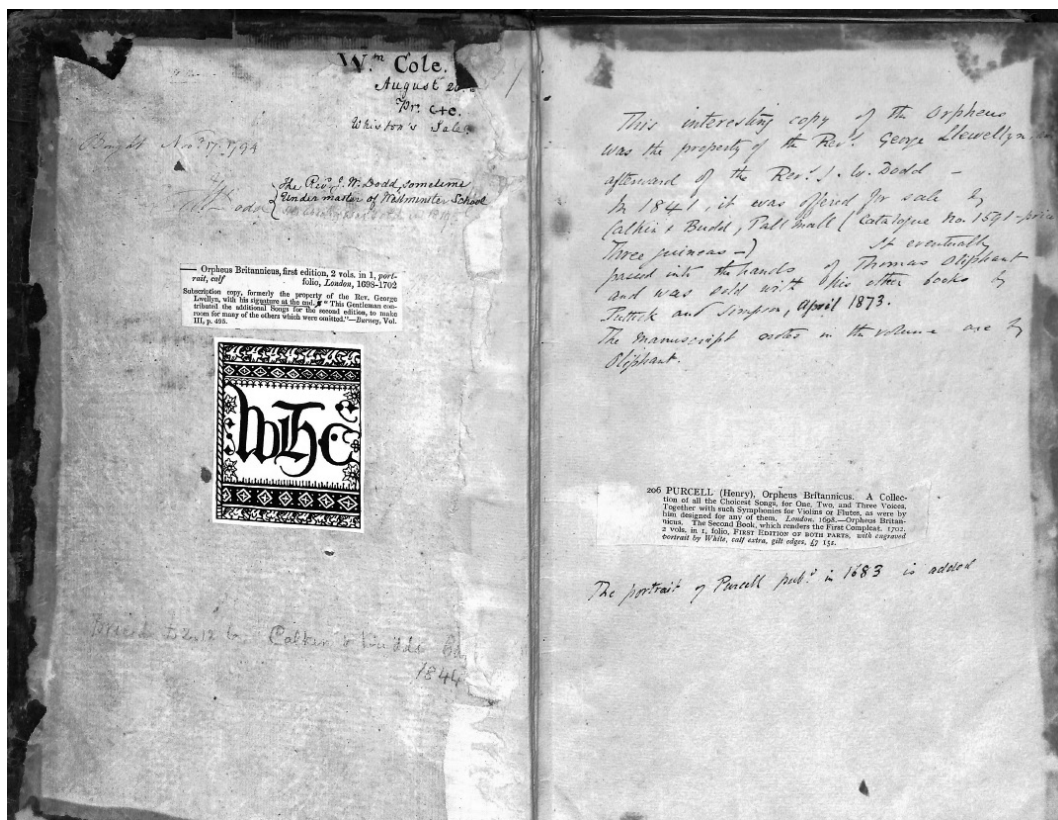 Wm Cole.
August 20
Pr: c+e.
Whiston's Sale
Bought Novr 17. 1794
The Revd J. W. Dodd, sometime
Under master of Westminster School
—— Orpheus Britannicus, first edition, 2 vols. in 1, port-
rait, calf folio, London, 1698-1702
Subscription copy, formerly the property of the Rev. George
Lwellyn, with his signature at the end. "This Gentleman con-
tributed the additional Songs for the second edition, to make
room for many of the others which were omitted."—Burney, Vol.
III, p. 495.
WHC
Priced £2.12.6. Calkin & Budd
1844
This interesting copy of the Orpheus
was the property of the Revd. George Llewellyn
afterward of the Revd. J. W. Dodd –
In 1841, it was offered for sale by
Calkin & Budd, Pall Mall (Catalogue no. 1691-price
Three guineas –) It eventually
passed into the hands of Thomas Oliphant
and was sold with his other books by
Puttick and Simpson, April 1873.
The manuscript notes in the volume are by
Oliphant.
206 PURCELL (Henry), Orpheus Britannicus. A Collec-
tion of all the Choicest Songs, for One, Two, and Three Voices,
Together with such Symphonies for Violins or Flutes, as were by
him designed for any of them. London, 1698.—Orpheus Britan-
nicus. The Second Book, which renders the First Compleat. 1702.
2 vols. in 1, folio, FIRST EDITION OF BOTH PARTS, with engraved
portrait by White, calf extra, gilt edges, £7 15s.
The portrait of Purcell pubd. in 1683 is added